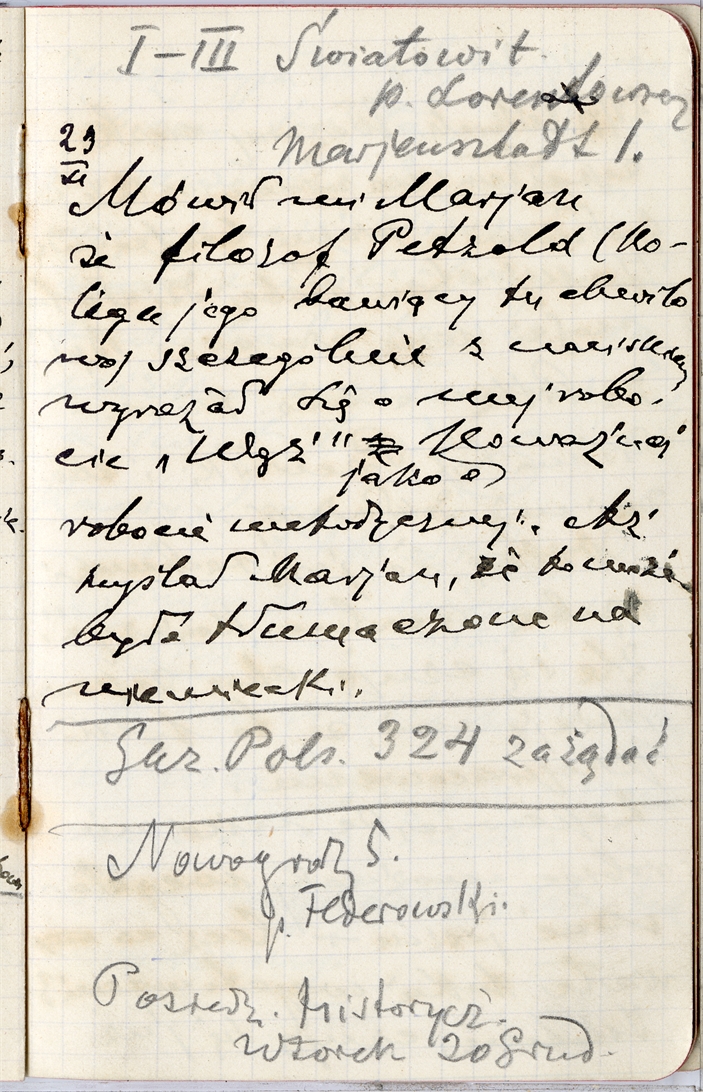 I–III Światowit.
p. Lorentowicz
Marjensztadt 1.
23
XI
Mówił mi Marjan
że filozof Petzold (ko-
lega jego bawiący tu chwilo
wo) szczególnie z
wyrażał się o mej robo-
cie „ " Poważnej
jako o
robocie metodycznej. Aż
myślał Marjan, że powinna
być tłumaczone na
niemiecki.
Gaz. Pols. 324 zażądać
Nowogrodz 5.
p. Federowski.
Posiedz. historycz.
Wtorek 20 Grud.